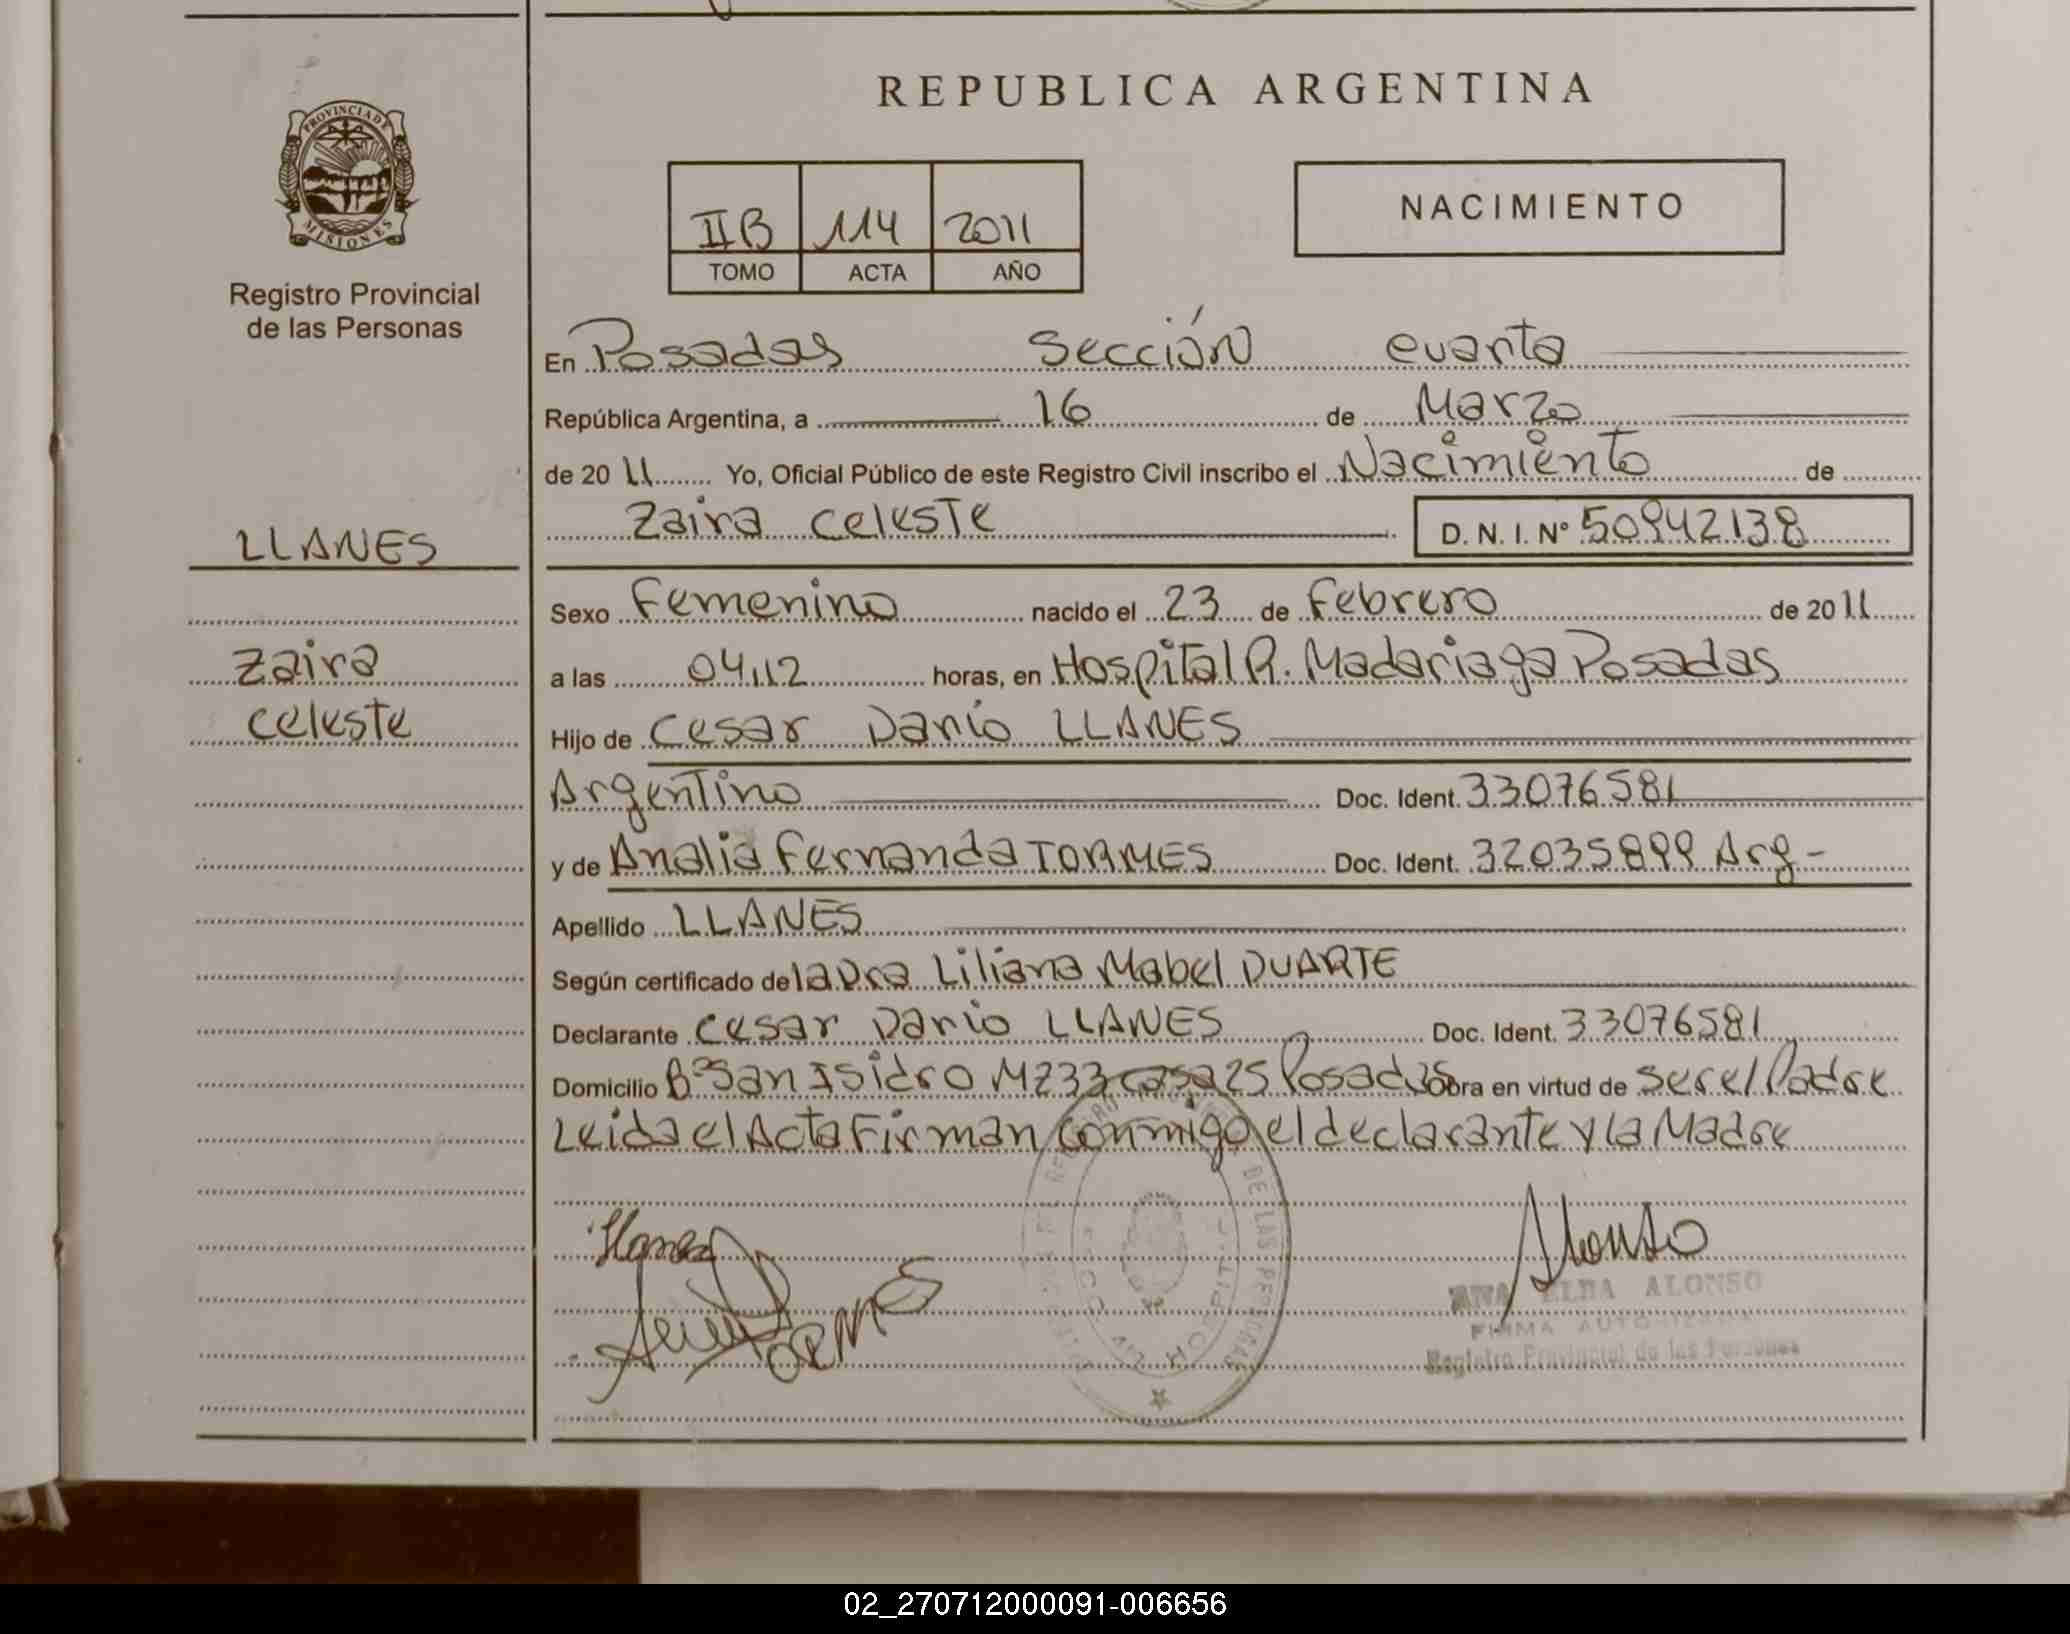 REPUBLICA ARGENTINA
PROVINCIA DE
MISIONES
Registro Provincial
de las Personas
IIB 114 2011
TOMO ACTA AÑO
NACIMIENTO
En Posadas Sección cuarta
República Argentina, a 16 de Marzo
de 2011 Yo, Oficial Público de este Registro Civil inscribo el Nacimiento de
Zaira Celeste D. N. I. Nº 50942138
LLANES
Zaira
Celeste
Sexo Femenino nacido el 23 de Febrero de 2011
a las 04,12 horas, en Hospital R. Madariaga Posadas
Hijo de Cesar Dario LLANES
Argentino Doc. Ident. 33076581
y de Analia Fernanda TORMES Doc. Ident. 32035899 Arg-
Apellido LLANES
Según certificado de la Dra Liliana Mabel DUARTE
Declarante Cesar Dario LLANES Doc. Ident. 33076581
Domicilio Bº San Isidro M233 casa 25 Posadas Obra en virtud de ser el Padre
Leida el Acta Firman conmigo el declarante y la Madre
Llanes
Alonso
ANA ELBA ALONSO
FIRMA AUTORIZADA
Registro Provincial de las Personas
DE LAS PERSONAS
02_270712000091-006656